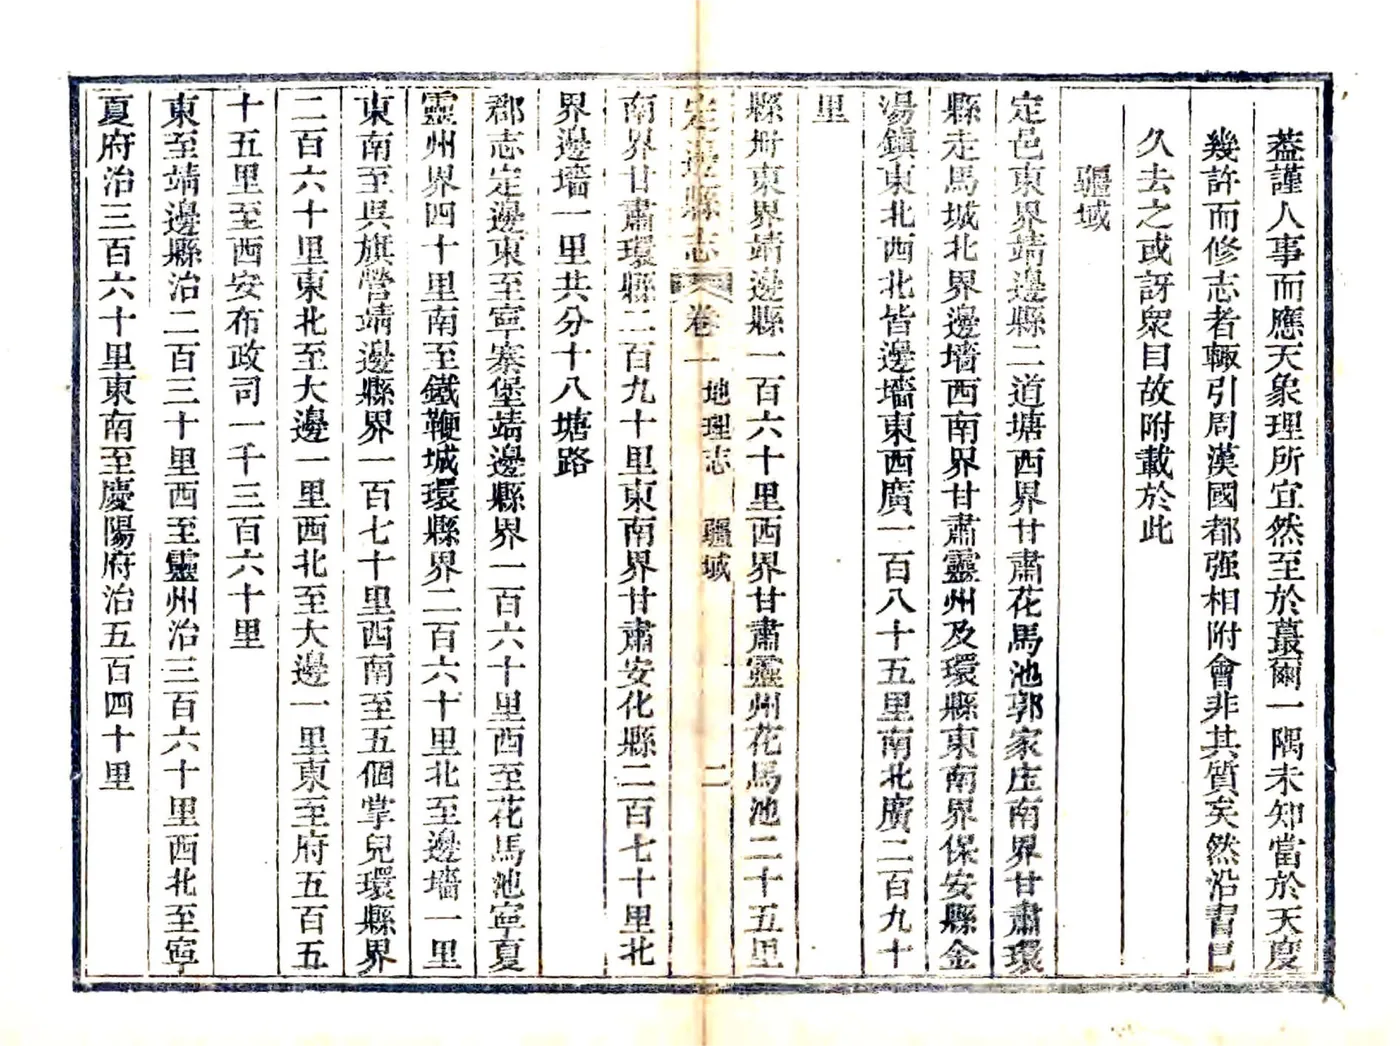 葢謹人事而應天象理所宜然至於蕞爾一隅未知當於天度
幾許而修志者輙引周漢國都强相附會非其質矣然沿習已
久去之或訝衆目故附載於此
疆域
定邑東界靖邊縣二道塘西界甘肅花馬池郭家庄南界甘肅環
縣走馬城北界邊墻西南界甘肅靈州及環縣東南界保安縣金
湯鎮東北西北皆邊墻東西廣一百八十五里南北廣二百九十
里
縣册東界靖邊縣一百六十里西界甘肅靈州花馬池二十五里
定邊縣志 卷一 地理志 疆域 二
南界甘肅環縣二百九十里東南界甘肅安化縣二百七十里北
界邊墻一里共分十八塘路
郡志定邊東至寧寨堡靖邊縣界一百六十里西至花馬池寧夏
靈州界四十里南至鐵鞭城環縣界二百六十里北至邊墻一里
東南至吳旗營靖邊縣界一百七十里西南至五個掌兒環縣界
二百六十里東北至大邊一里西北至大邊一里東至府五百五
十五里至西安布政司一千三百六十里
東至靖邊縣治二百三十里西至靈州治三百六十里西北至寧
夏府治三百六十里東南至慶陽府治五百四十里